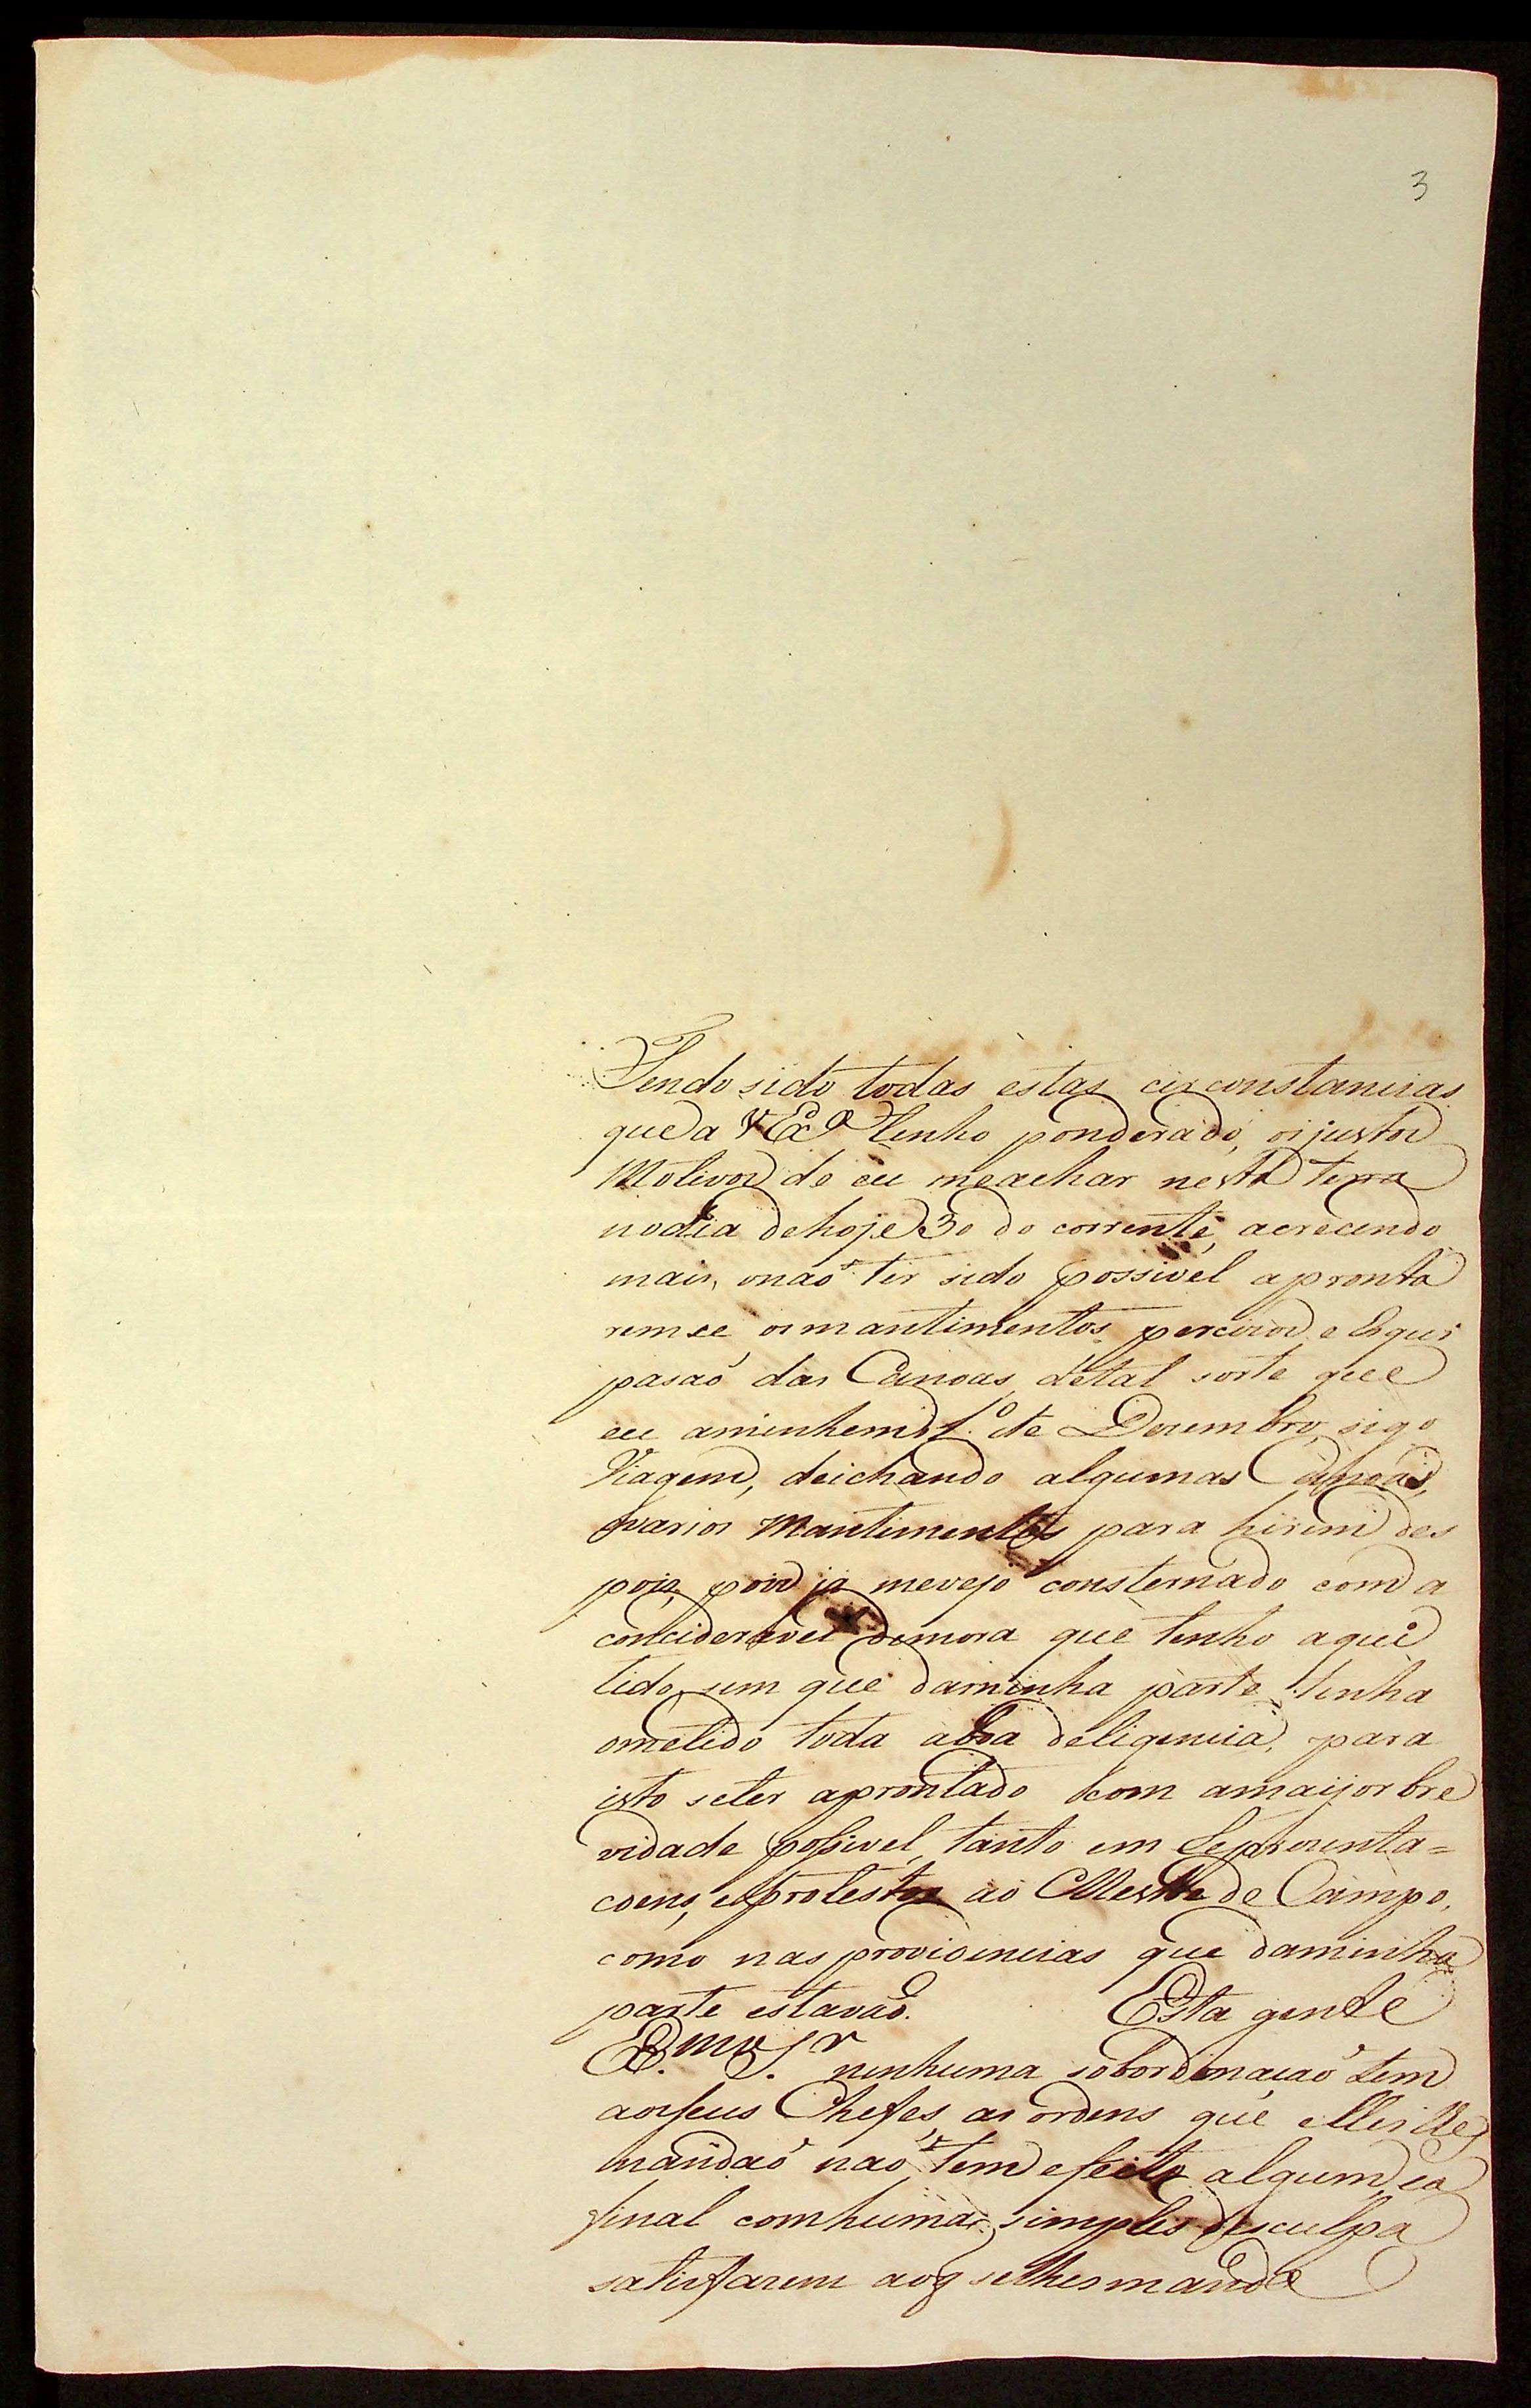 3
Tendo sido todas estas circonstancias
que a V Exª tenho ponderado, os justos
Motivos de eu me achar nesta terra
no dia de hoje 30 do corrente, acrecendo
mais, onaõ ter sido possivel apronta
remse os mantimentos percizos e Esqui
pasaõ das Canoas, detal sorte que
eu amenhem 1.º de Dezembro, sigo
Viagem, deichando algumas Canoas,
varios Mantimentos para hirem des
pois, pois ja mevejo consternado com a
concideravel demora que tenho aqui
tido, sem que daminha parte tenha
ometido toda aboa deligencia, para
isto seter aprontado com amaijor bre
vidade possivel, tanto em Reprezenta=
coens, eprotestos ao Mestre de Campo,
como nas providencias que daminha
parte estavaõ. Esta gente
Ex.mo S.r nenhuma sobordinaçaõ tem
aos seus Chefes, as ordens que elles lhes
mandaõ naõ tem efeito algum, ea
final comhuma simples desculpa
satisfazem aoq selhesmanda